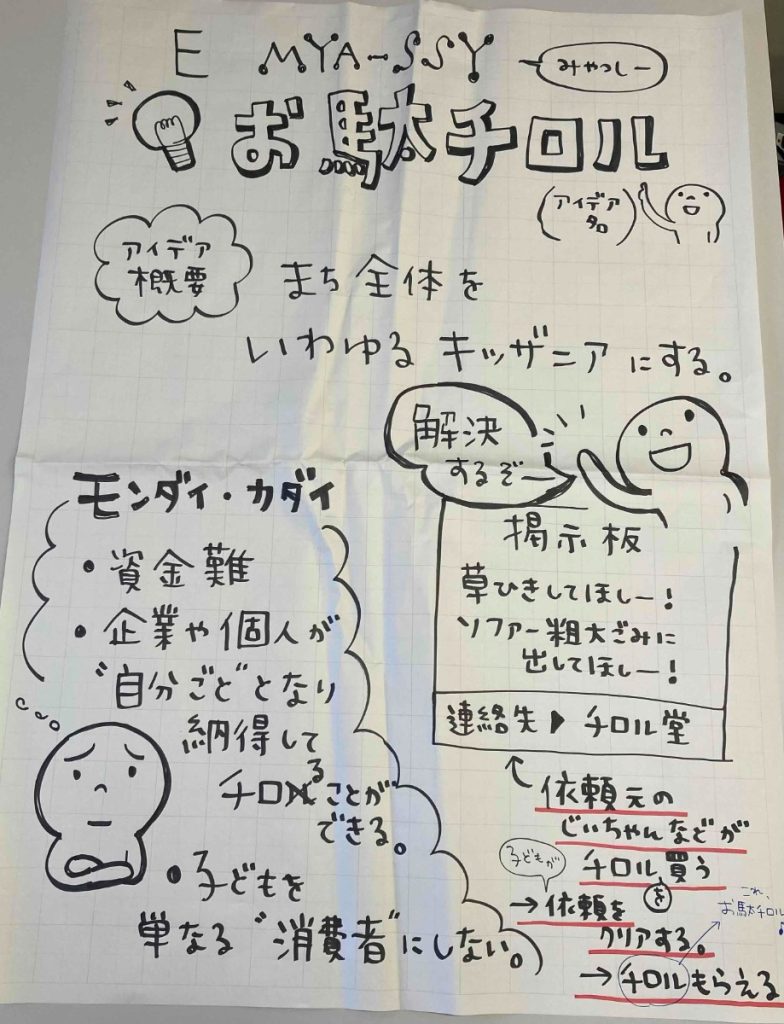 E MYA-SSY
みやっしー
お駄チロル
(アイデア名)
アイデア
概要
まち全体を
いわゆるキッザニアにする。
解決
するぞー
モンダイ・カダイ
・資金難
・企業や個人が
"自分ごと"となり
納得して
チロることが
できる。
・子どもを
単なる"消費者"にしない。
掲示板
草ひきしてほしー!
ソファー粗大ごみに
出してほしー!
連絡先▶チロル堂
↑依頼元の
じいちゃんなどが
チロルを買う
子どもが
→依頼を
クリアする。
→チロルもらえる
これ、
お駄チロル♪